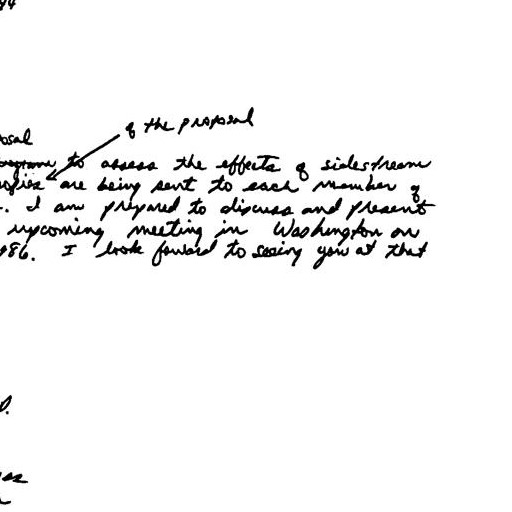 of the proposal
posal
program to assess the effects of sidestream
copies are being sent to each member of
. I am prepared to discuss and present
upcoming meeting in Washington on
986. I look forward to seeing you at that
D.